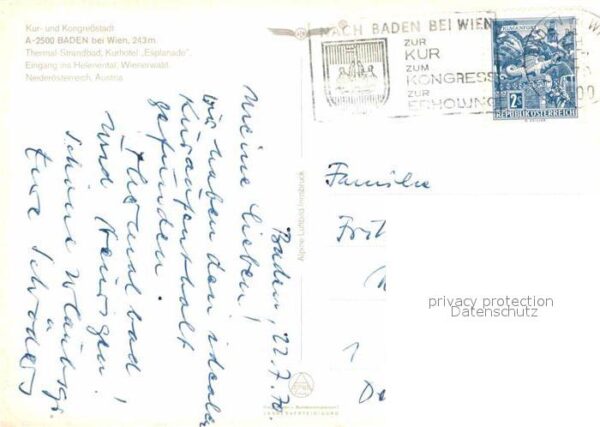 Kur- und Kongreßstadt
A-2500 BADEN bei Wien, 243m
Thermal Strandbad, Kurhotel „Esplanade“,
Eingang ins Helenental, Wienerwald.
Niederösterreich, Austria
NACH BADEN BEI WIEN
ZUR
KUR
ZUM
KONGRESS
ZUR
ERHOLUNG
2S
REPUBLIK ÖSTERREICH
Baden, 22.7.70
Meine Lieben!
Wir haben den idealen
Kuraufenthalt
gefunden.
Thermalbad
und Heurigen!
Schöne Urlaubsgr.
Eure
Alpine Luftbild Innsbruck
Familie
privacy protection
Datenschutz